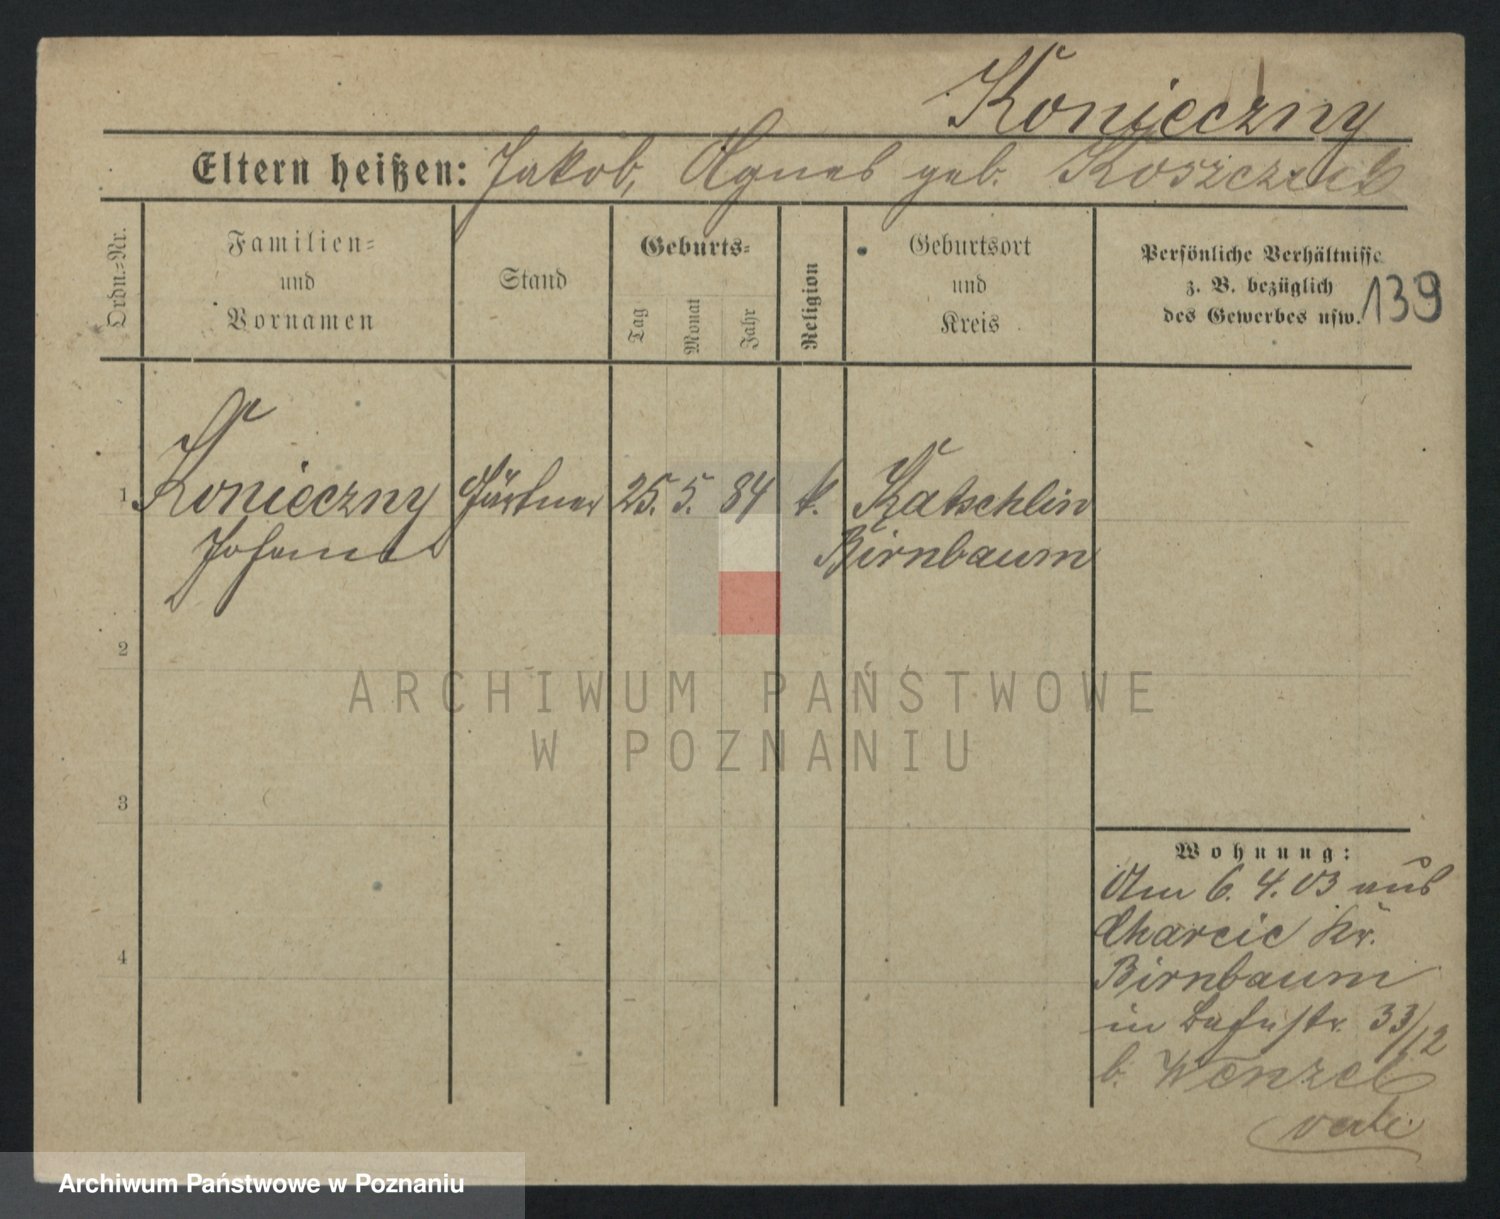 Konieczny
Eltern heißen: Jakob, Agnes geb.
Ordn.=Nr.
Familien=
und
Vornamen
Stand
Geburts=
Tag
Monat
Jahr
Religion
Geburtsort
und
Kreis
Persönliche Verhältnisse
z. B. bezüglich
des Gewerbes usw.
139
1 Konieczny Gärtner 25. 5. 84 k. Katschlin
Johann Birnbaum
2
3
4
Wohnung:
Am 6. 4. 03 aus
Charcic Kr.
Birnbaum
in 33/12
b. Wenzel
verte
ARCHIWUM PAŃSTWOWE
W POZNANIU
Archiwum Państwowe w Poznaniu